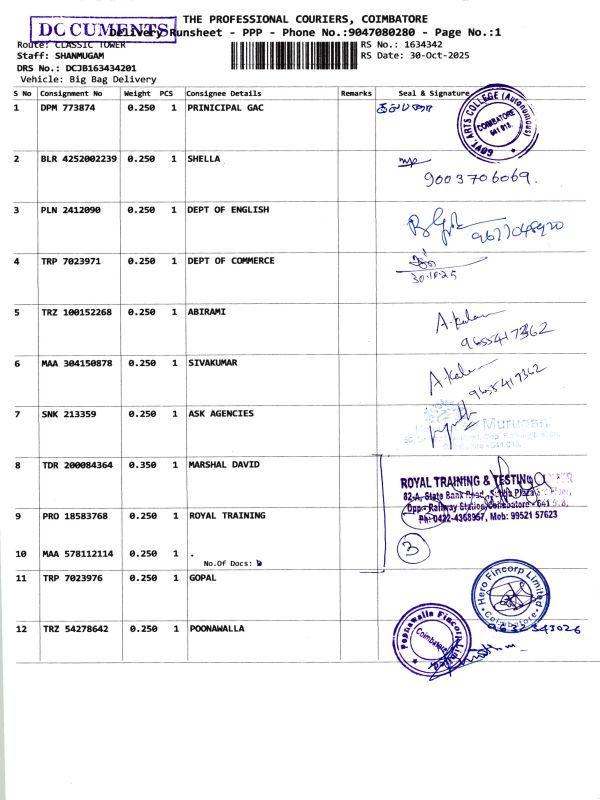 THE PROFESSIONAL COURIERS, COIMBATORE
DOCUMENTS
Delivery Runsheet - PPP - Phone No.:9047080280 - Page No.:1
Route: CLASSIC TOWER
RS No.: 1634342
Staff: SHANMUGAM
RS Date: 30-Oct-2025
DRS No.: DCJB163434201
Vehicle: Big Bag Delivery
S No Consignment No Weight PCS Consignee Details Remarks Seal & Signature
1 DPM 773874 0.250 1 PRINICIPAL GAC
GOVT. ARTS COLLEGE (Autonomous)
COIMBATORE
641 018.
2 BLR 4252002239 0.250 1 SHELLA
9003706069.
3 PLN 2412090 0.250 1 DEPT OF ENGLISH
4 TRP 7023971 0.250 1 DEPT OF COMMERCE
30.10.25
5 TRZ 100152268 0.250 1 ABIRAMI
A.kalam
9655417362
6 MAA 304150878 0.250 1 SIVAKUMAR
9655417362
7 SNK 213359 0.250 1 ASK AGENCIES
Murugan
8 TDR 200084364 0.350 1 MARSHAL DAVID
ROYAL TRAINING & TESTING
82-A, State Bank Road,
Opp. Railway Station, Coimbatore - 641 018,
Ph: 0422-4368957, Mob: 99521 57623
9 PRO 18583768 0.250 1 ROYAL TRAINING
3
10 MAA 578112114 0.250 1 .
No.Of Docs:
11 TRP 7023976 0.250 1 GOPAL
Hero Fincorp Limited
Coimbatore
12 TRZ 54278642 0.250 1 POONAWALLA
Poonawalla Fincorp Limited
Coimbatore